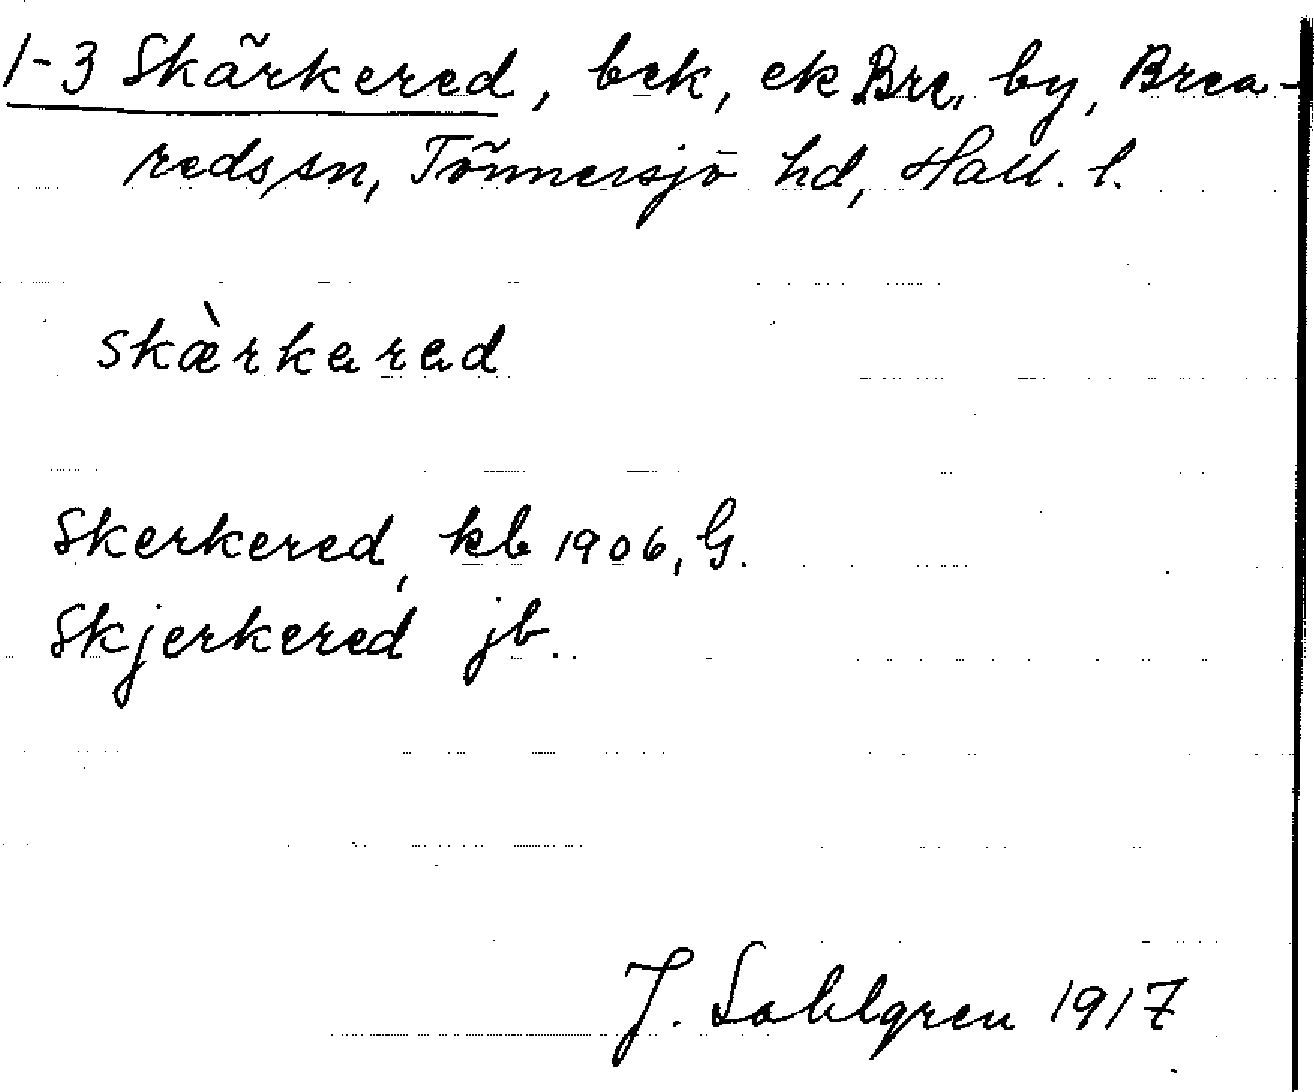 1-3 Skärkered, bek, ek Bre, by, Brea-
reds sn, Tönnersjö hd, Hall. l.
skæ̀rkarad
Skerkered, kb 1906, G.
Skjerkered jb.
J. Sahlgren 1917